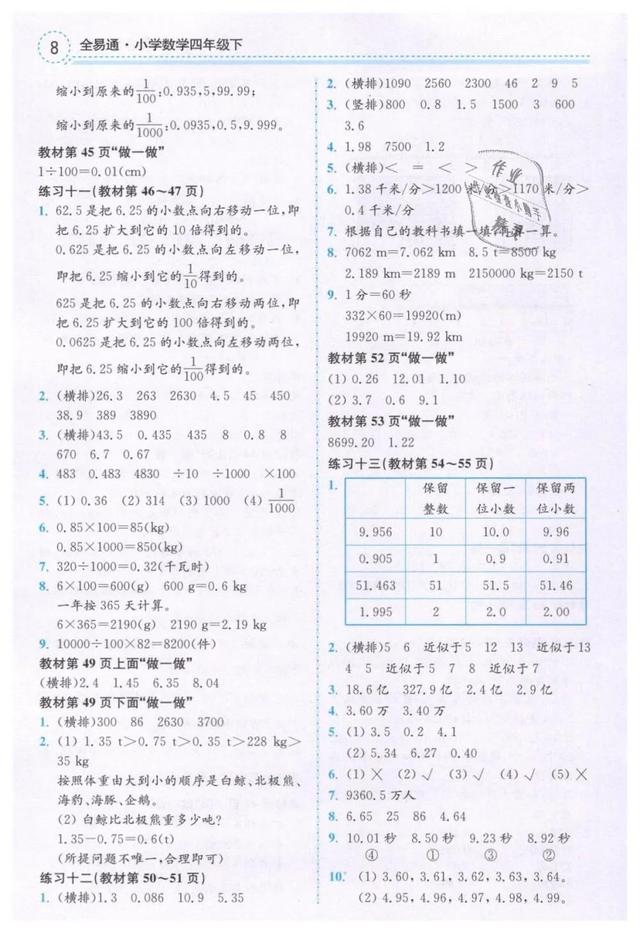 8 全易通·小学数学四年级下
缩小到原来的1/100:0.935,5,99.99;
缩小到原来的1/1000:0.0935,0.5,9.999。
教材第45页“做一做”
1÷100=0.01(cm)
练习十一(教材第46~47页)
1. 62.5是把6.25的小数点向右移动一位,即
把6.25扩大到它的10倍得到的。
0.625是把6.25的小数点向左移动一位,
即把6.25缩小到它的1/10得到的。
625是把6.25的小数点向右移动两位,即
把6.25扩大到它的100倍得到的。
0.0625是把6.25的小数点向左移动两位,
即把6.25缩小到它的1/100得到的。
2. (横排)26.3 263 2630 4.5 45 450
38.9 389 3890
3. (横排)43.5 0.435 435 8 0.8 8
670 6.7 0.67
4. 483 0.483 4830 ÷10 ÷1000 ×100
5. (1)0.36 (2)314 (3)1000 (4)1/1000
6. 0.85×100=85(kg)
0.85×1000=850(kg)
7. 320÷1000=0.32(千瓦时)
8. 6×100=600(g) 600 g=0.6 kg
一年按365天计算。
6×365=2190(g) 2190 g=2.19 kg
9. 10000÷100×82=8200(件)
教材第49页上面“做一做”
(横排)2.4 1.45 6.35 8.04
教材第49页下面“做一做”
1. (横排)300 86 2630 3700
2. (1) 1.35 t>0.75 t>0.35 t>228 kg>
35 kg
按照体重由大到小的顺序是白鲸、北极熊、
海豹、海豚、企鹅。
(2) 白鲸比北极熊重多少吨?
1.35-0.75=0.6(t)
(所提问题不唯一,合理即可)
练习十二(教材第50~51页)
1. (横排)1.3 0.086 10.9 5.35
2. (横排)1090 2560 2300 46 2 9 5
3. (竖排)800 0.8 1.5 1500 3 600
3.6
4. 1.98 7500 1.2
5. (横排)< = < >
6. 1.38千米/分>1200米/分>1170米/分>
0.4千米/分
7. 根据自己的教科书填一填,算一算。
8. 7062 m=7.062 km 8.5 t=8500 kg
2.189 km=2189 m 2150000 kg=2150 t
9. 1分=60秒
332×60=19920(m)
19920 m=19.92 km
教材第52页“做一做”
(1) 0.26 12.01 1.10
(2) 3.7 0.6 9.1
教材第53页“做一做”
8699.20 1.22
练习十三(教材第54~55页)
1.
保留整数 保留一位小数 保留两位小数
9.956 10 10.0 9.96
0.905 1 0.9 0.91
51.463 51 51.5 51.46
1.995 2 2.0 2.00
2. (横排)5 6 近似于5 12 13 近似于13
4 5 近似于5 7 8 近似于7
3. 18.6亿 327.9亿 2.4亿 2.9亿
4. 3.60万 3.40万
5. (1) 3.5 0.2 4.1
(2) 5.34 6.27 0.40
6. (1)× (2)√ (3)√ (4)√ (5)×
7. 9360.5万人
8. 6.65 25 86 4.64
9. 10.01秒 8.50秒 9.23秒 8.92秒
④ ① ③ ②
10. (1) 3.60,3.61,3.62,3.63,3.64。
(2) 4.95,4.96,4.97,4.98,4.99。
作业